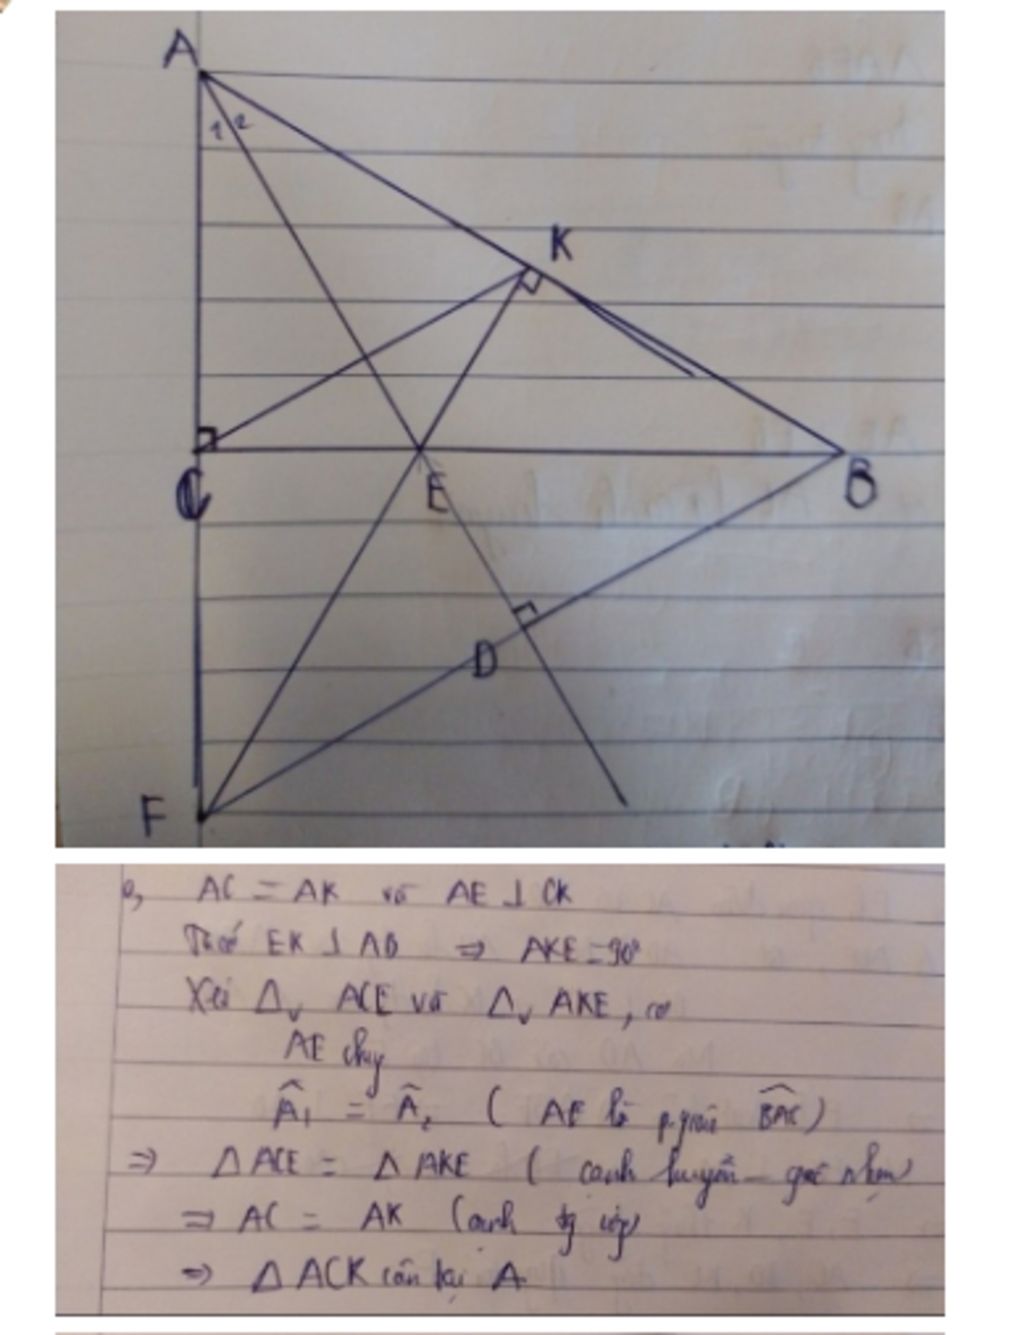 A
1 2
K
C
E
B
D
F
a, AC = AK và AE ⊥ CK
EK ⊥ AB ⇒ AKE = 90°
Xét Δv ACE và Δv AKE, có
AE chung
Â1 = Â2 ( AE là p.giác BAC )
⇒ Δ ACE = Δ AKE ( cạnh huyền - góc nhọn )
⇒ AC = AK (cạnh tg ứng)
⇒ Δ ACK cân tại A